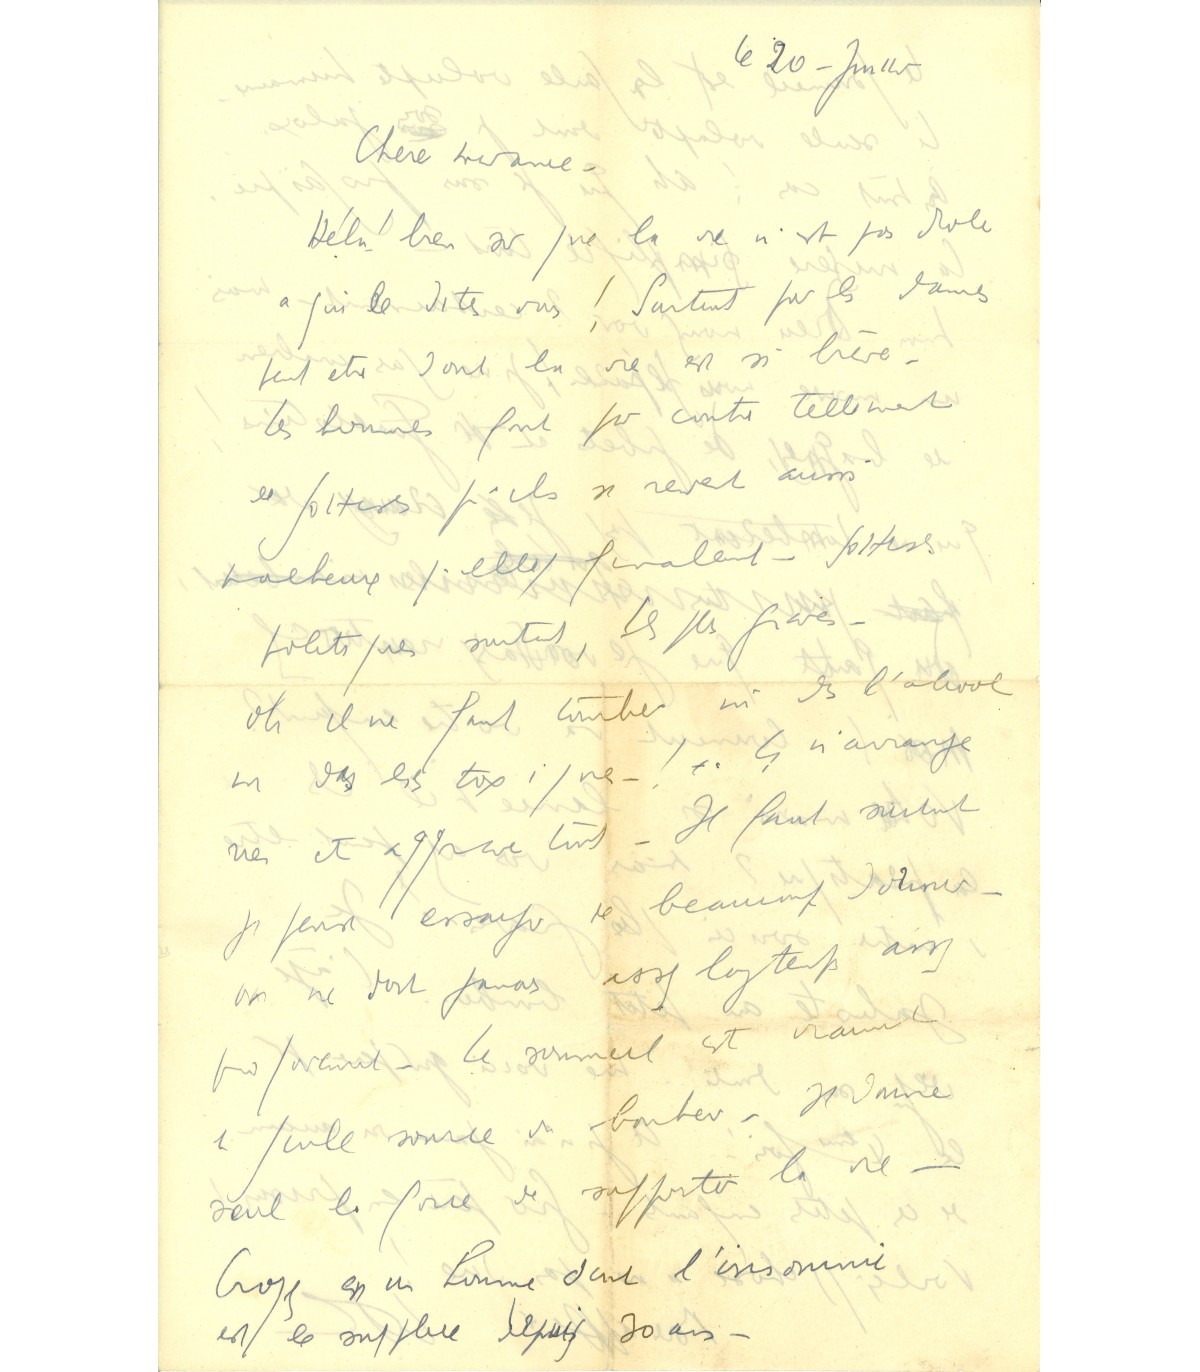 le 20 - Juillet
Chère
Hélas! bien sûr que la vie n'est pas drôle
à qui le dites vous ! Surtout pour les dames
peut etre dont la vie est si brève -
Les hommes font par contre tellement
de sottises qu'ils se rendent aussi
malheureux qu'elles finalement - sottises
politiques surtout, les plus graves -
Oh il ne faut tomber ni ds l'alcool
ni dans les toxiques - ! Ça n'arrange
rien et aggrave tout - Il faut surtout
je pense essayer de beaucoup dormir -
on ne dort jamais assez longtemps assez
profondément - Le sommeil est vraiment
la seule source du bonheur - Il donne
seul la force de supporter la vie -
Croyez en un homme dont l'insomnie
est le supplice depuis 30 ans -